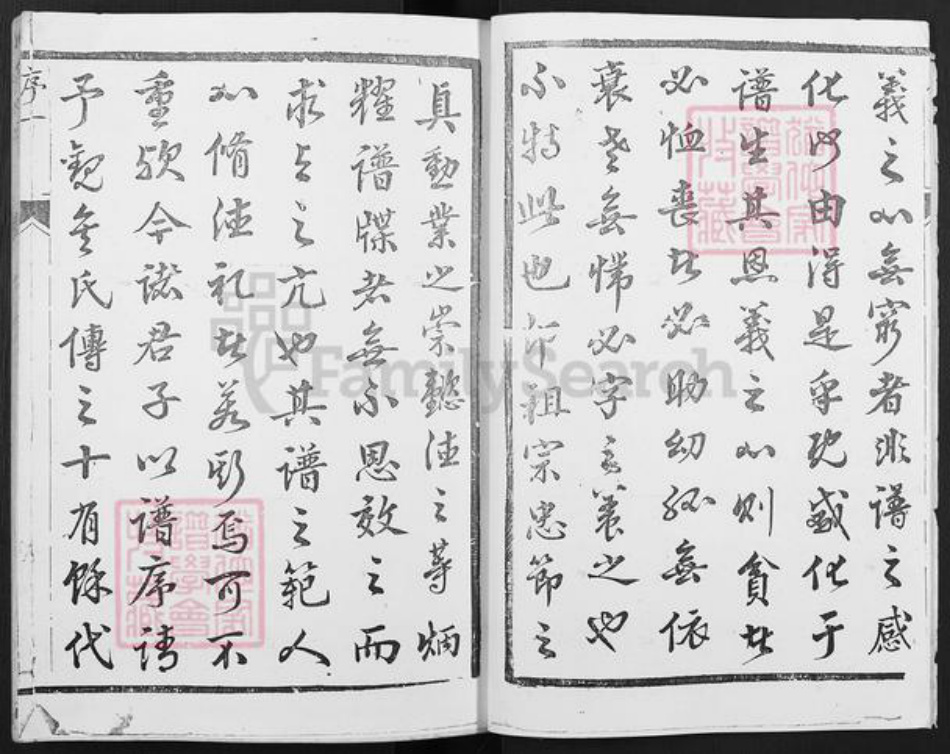 義之心無窮者非譜之感
化何由得是乎既感化于
譜生其恩義之心則貧者
必恤喪者必助幼孤無依
衰老無悌必字之養之也
不特此也即祖宗忠節之
真勳業之崇懿德之等炳
耀譜牒者無不思效之而
求與之亢也其譜之範人
心脩德礼者若斯焉可不
重歟今諸君子以譜序請
予觀吳氏傳之十有餘代
序 一
FamilySearch